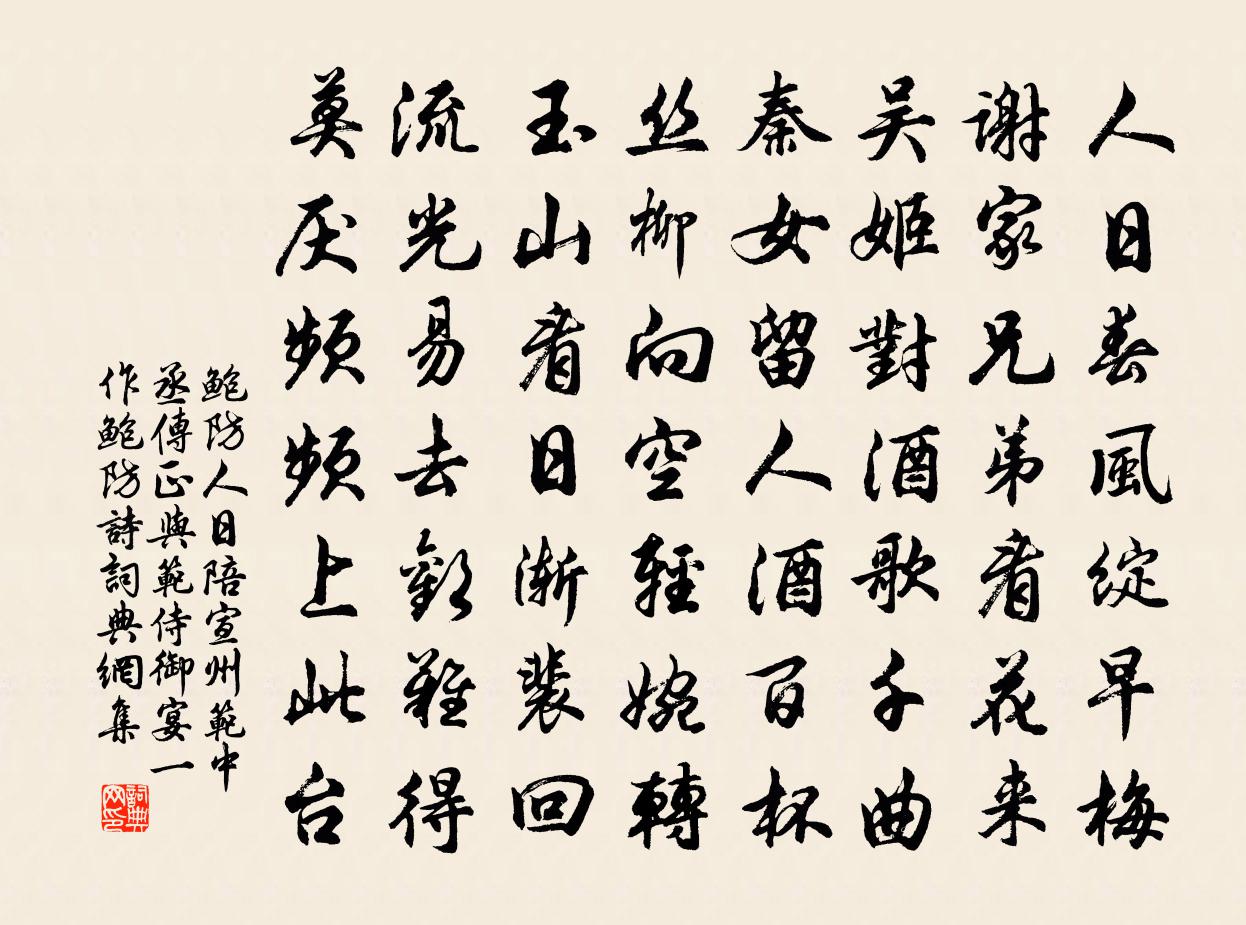 人日春風綻早梅
謝家兄弟看花来
吴姬對酒歌千曲
秦女留人酒百杯
丝柳向空輕婉轉
玉山看日漸裴回
流光易去歡難得
莫厌頻頻上此台
鮑防人日陪宣州範中
丞傳正與範侍御宴一
作鮑防詩詞典網集
詞典
网印